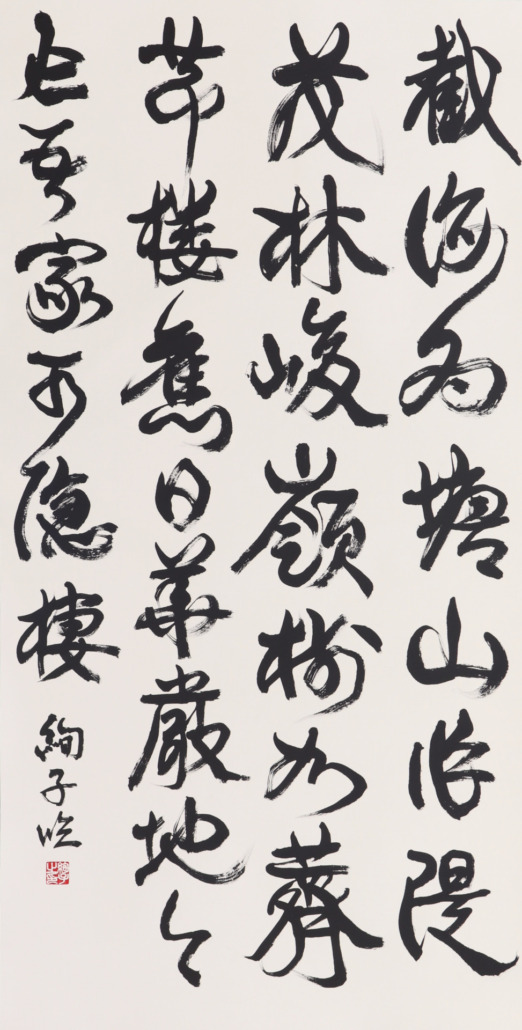 截海為塘山作隄
茂林峻嶺樹如薺
樓舊日華嚴地
吾家可隱棲
絢子臨